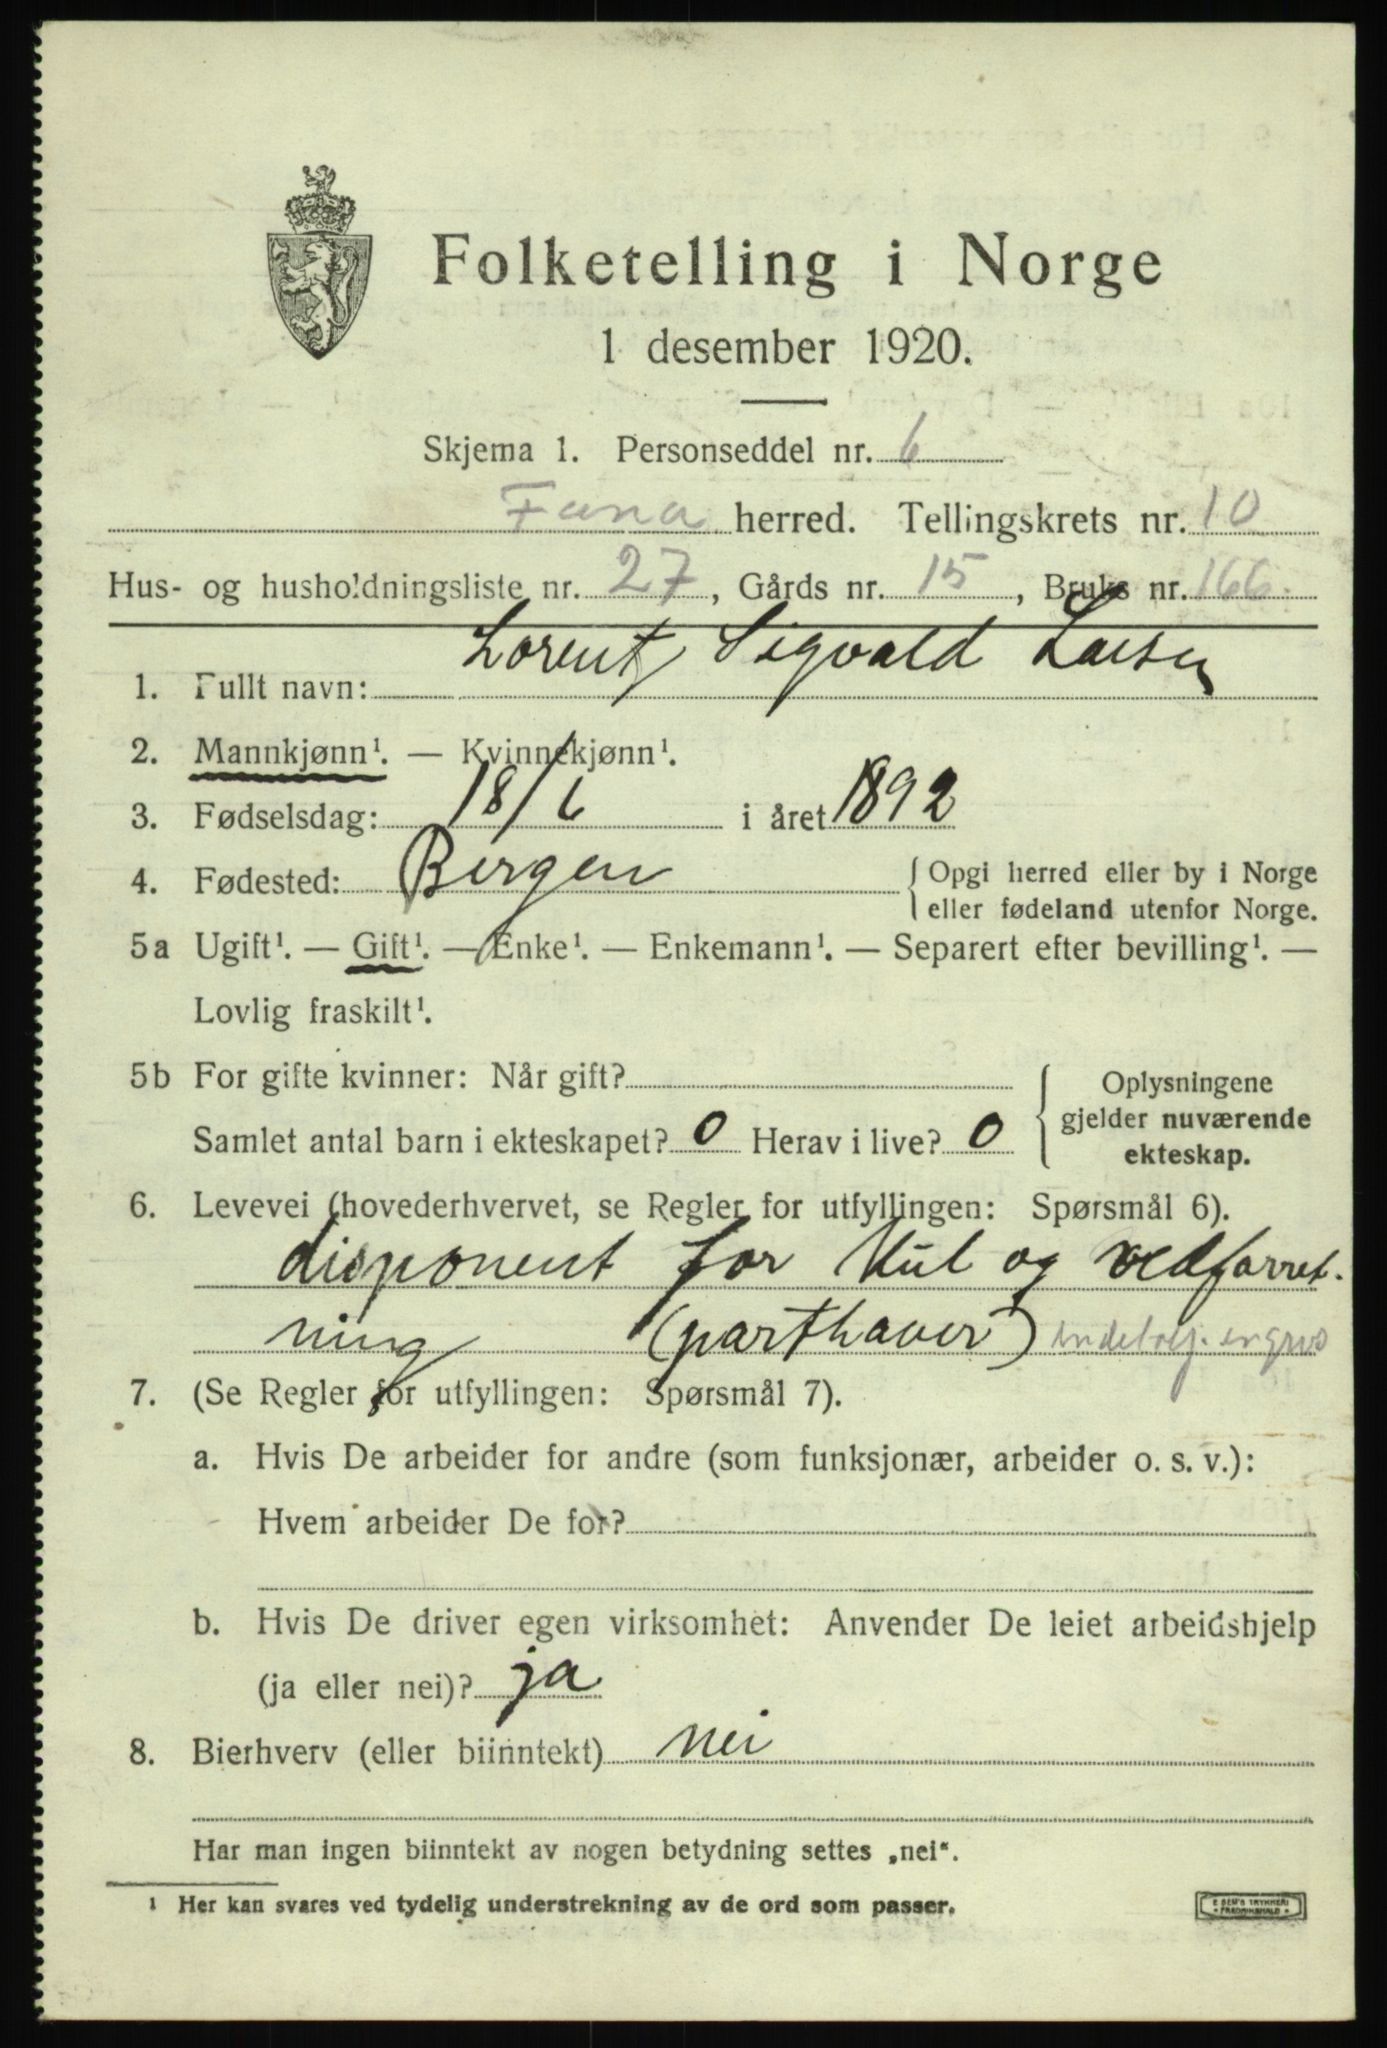 Folketelling i Norge
1 desember 1920.
Skjema 1. Personseddel nr. 6
Fana herred. Tellingskrets nr. 10
Hus- og husholdningsliste nr. 27, Gårds nr. 15, Bruks nr. 166.
1. Fullt navn: Lorentz Sigvald Larsen
2. Mannkjønn¹. — Kvinnekjønn¹.
3. Fødselsdag: 18/6 i året 1892
4. Fødested: Bergen { Opgi herred eller by i Norge
eller fødeland utenfor Norge.
5a Ugift¹. — Gift¹. — Enke¹. — Enkemann¹. — Separert efter bevilling¹. —
Lovlig fraskilt¹.
5b For gifte kvinner: Når gift?
Samlet antal barn i ekteskapet? 0 Herav i live? 0
{ Oplysningene
gjelder nuværende
ekteskap.
6. Levevei (hovederhvervet, se Regler for utfyllingen: Spørsmål 6).
disponent for Kul og vedforret-
ning (parthaver)
7. (Se Regler for utfyllingen: Spørsmål 7).
a. Hvis De arbeider for andre (som funksjonær, arbeider o. s. v.):
Hvem arbeider De for?
b. Hvis De driver egen virksomhet: Anvender De leiet arbeidshjelp
(ja eller nei)? ja
8. Bierhverv (eller biinntekt) nei
Har man ingen biinntekt av nogen betydning settes „nei“.
¹ Her kan svares ved tydelig understrekning av de ord som passer.